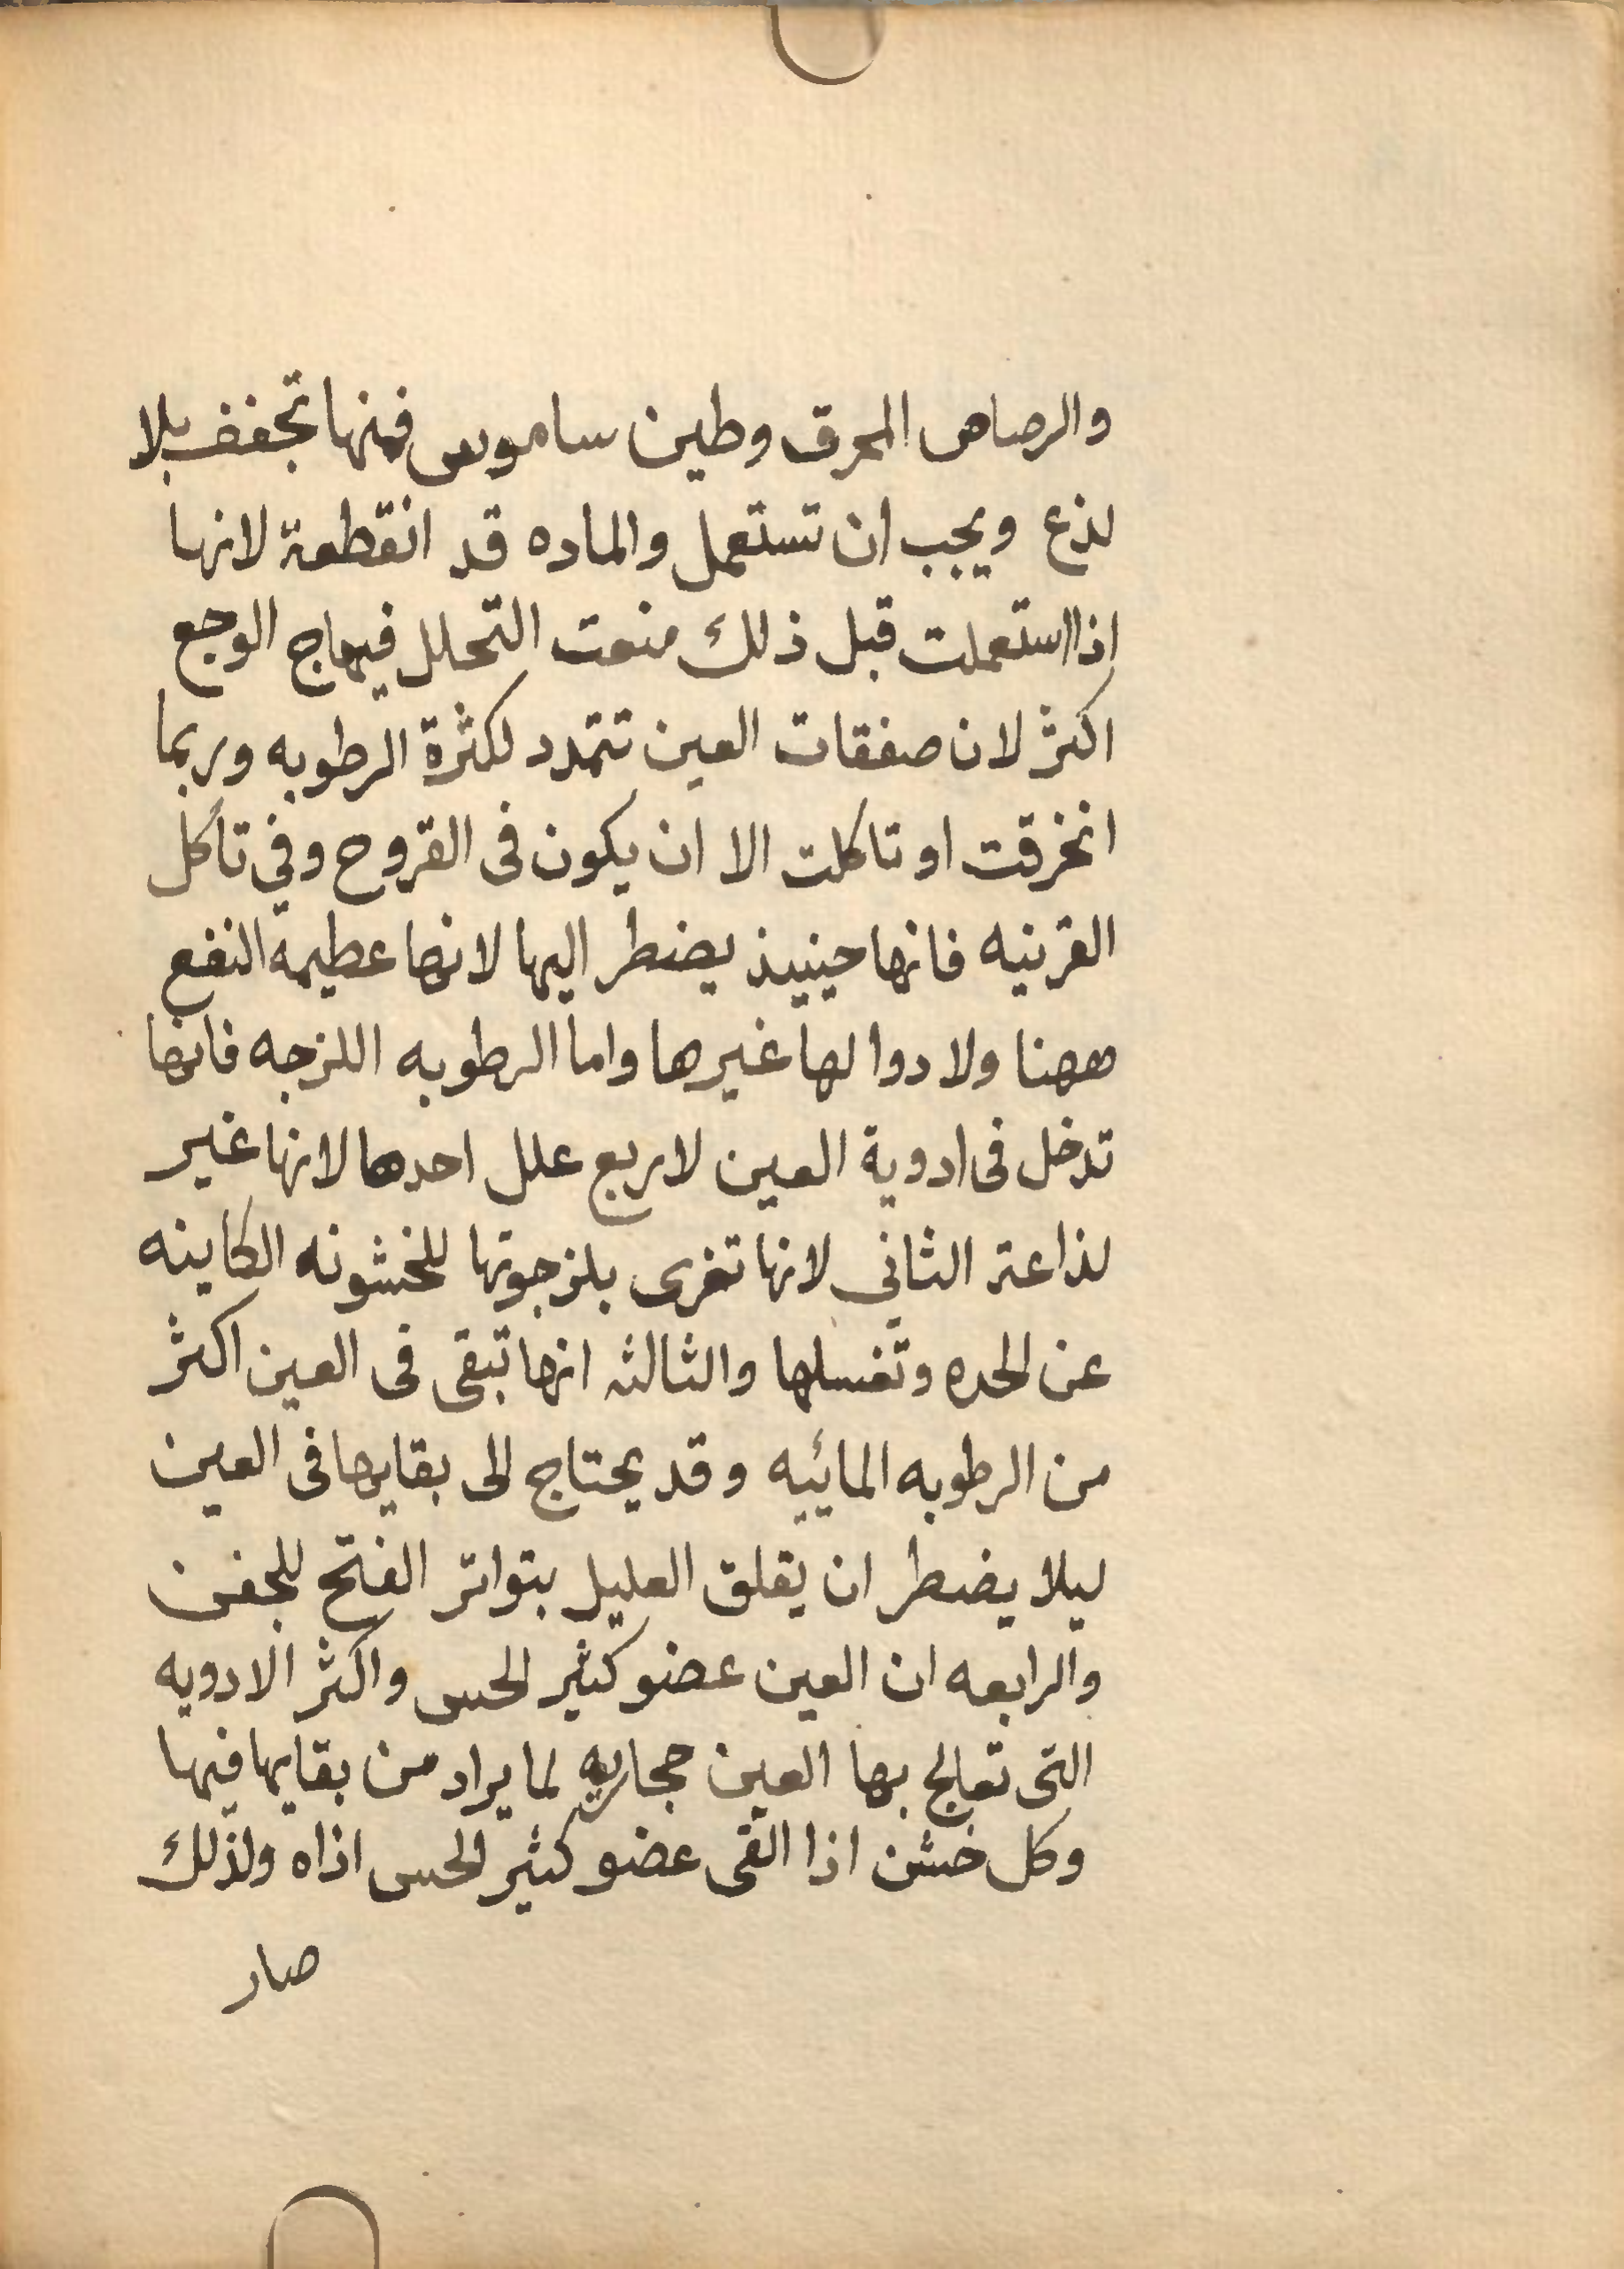 والرصاص المحرق وطين ساموس فمنها تجفف بلا
لذع ويجب ان تستعمل والماده قد انقطعة لانها
اذا استعملت قبل ذلك منعت التحلل فيهاج الوجع
اكثر لان صفقات العين تتمدد لكثرة الرطوبه وربما
انخرقت او تاكلت الا ان يكون فى القروح وفي تأكل
القرنيه فانها حينيذ يضطر اليها لانها عظيمة النفع
ههنا ولا دوا لها غيرها واما الرطوبه اللزجه فانها
تدخل فى ادوية العين لاربع علل احدها لانها غير
لذاعة الثاني لانها تغرى بلزجوتها للخشونه الكاينه
عن الحده وتغسلها والثالثه انها تبقى فى العين اكثر
من الرطوبه المائيه وقد يحتاج الى بقايها فى العين
ليلا يضطر ان يقلق العليل بتواتر الفتح للجفن
والرابعه ان العين عضو كثير الحس واكثر الادويه
التى تعالج بها العين حجاريه لما يراد من بقايها فيها
وكل خشن اذا القى عضو كثير الحس اذاه ولذلك
صار